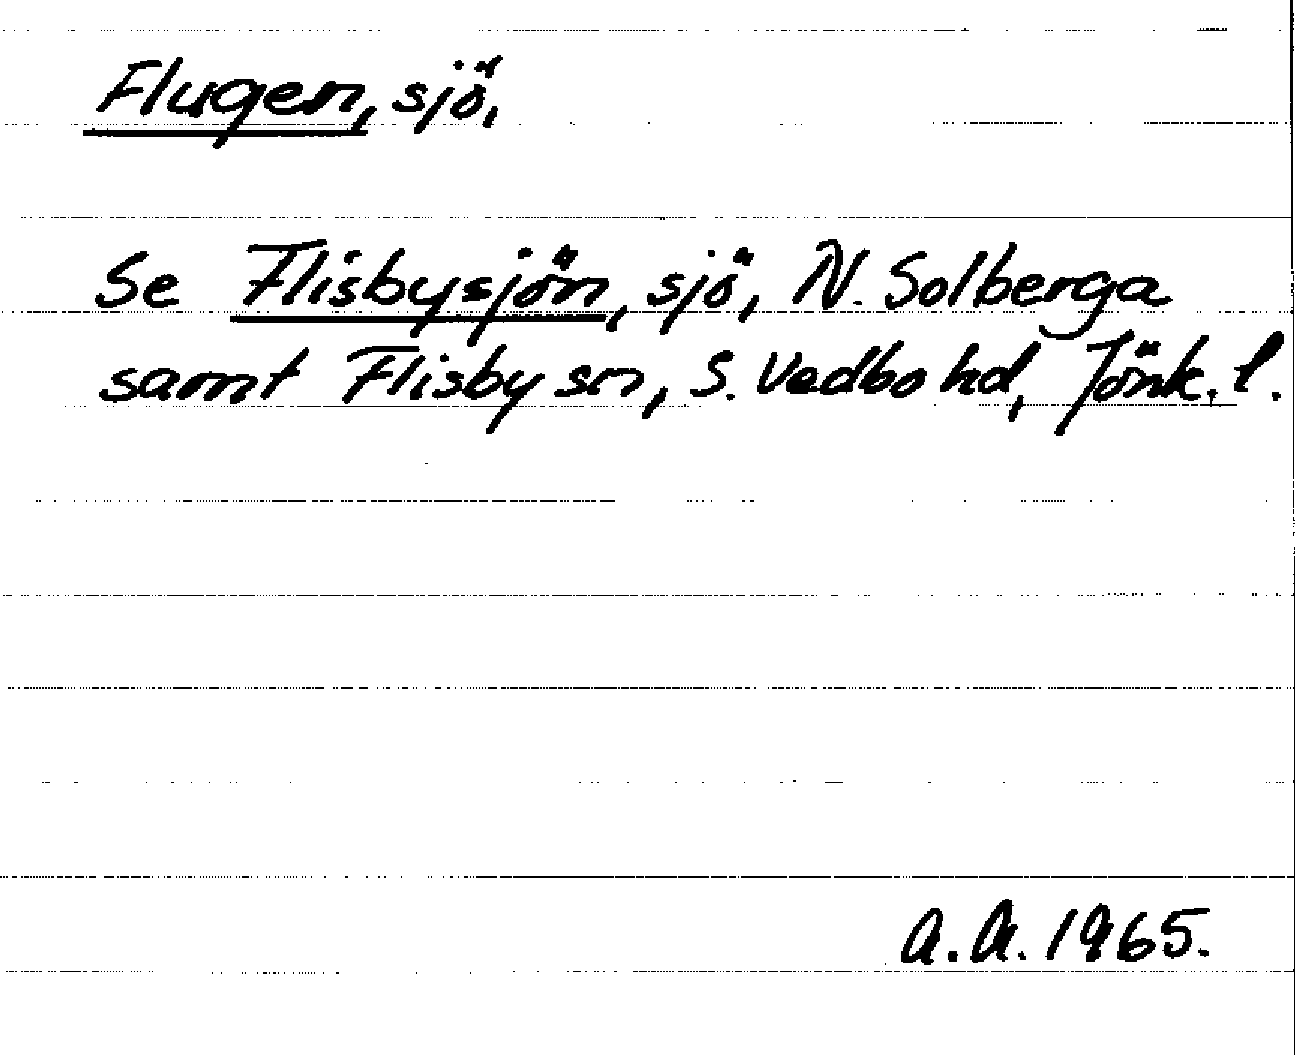 Flugen, sjö,
Se Flisbysjön, sjö, N. Solberga
samt Flisby sn, S. Vedbo hd, Jönk. l.
A.A. 1965.